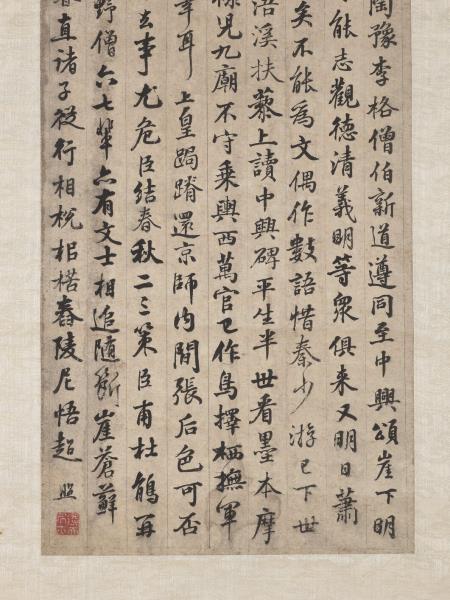 陶豫李格僧伯新道遵同至中興頌崖下明
能志觀德清義明等眾俱来又明日蕭
矣不能為文偶作數語惜秦少游已下世
浯溪扶藜上讀中興碑平生半世看墨本摩
兒九廟不守乘輿西萬官已作鳥擇栖撫軍
幸耳上皇跼蹐還京師内間張后色可否
去事尤危臣結春秋二三策臣甫杜鵑再
野僧六七輩亦有文士相追随斷崖蒼蘚
直諸子從行相梲柤楛舂陵尼悟超
照